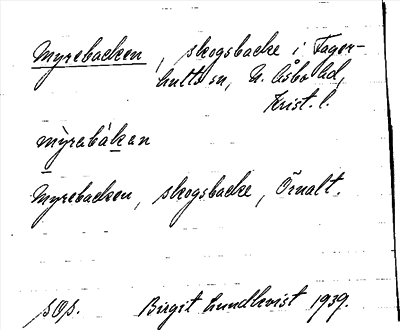 Myrebacken, skogsbacke i Fager-
hults sn, N. Åsbo hd,
Krist. l.
mỳrəbàkən
Myrebacken, skogsbacke, Örnalt.
Birgit Lundkvist 1939.